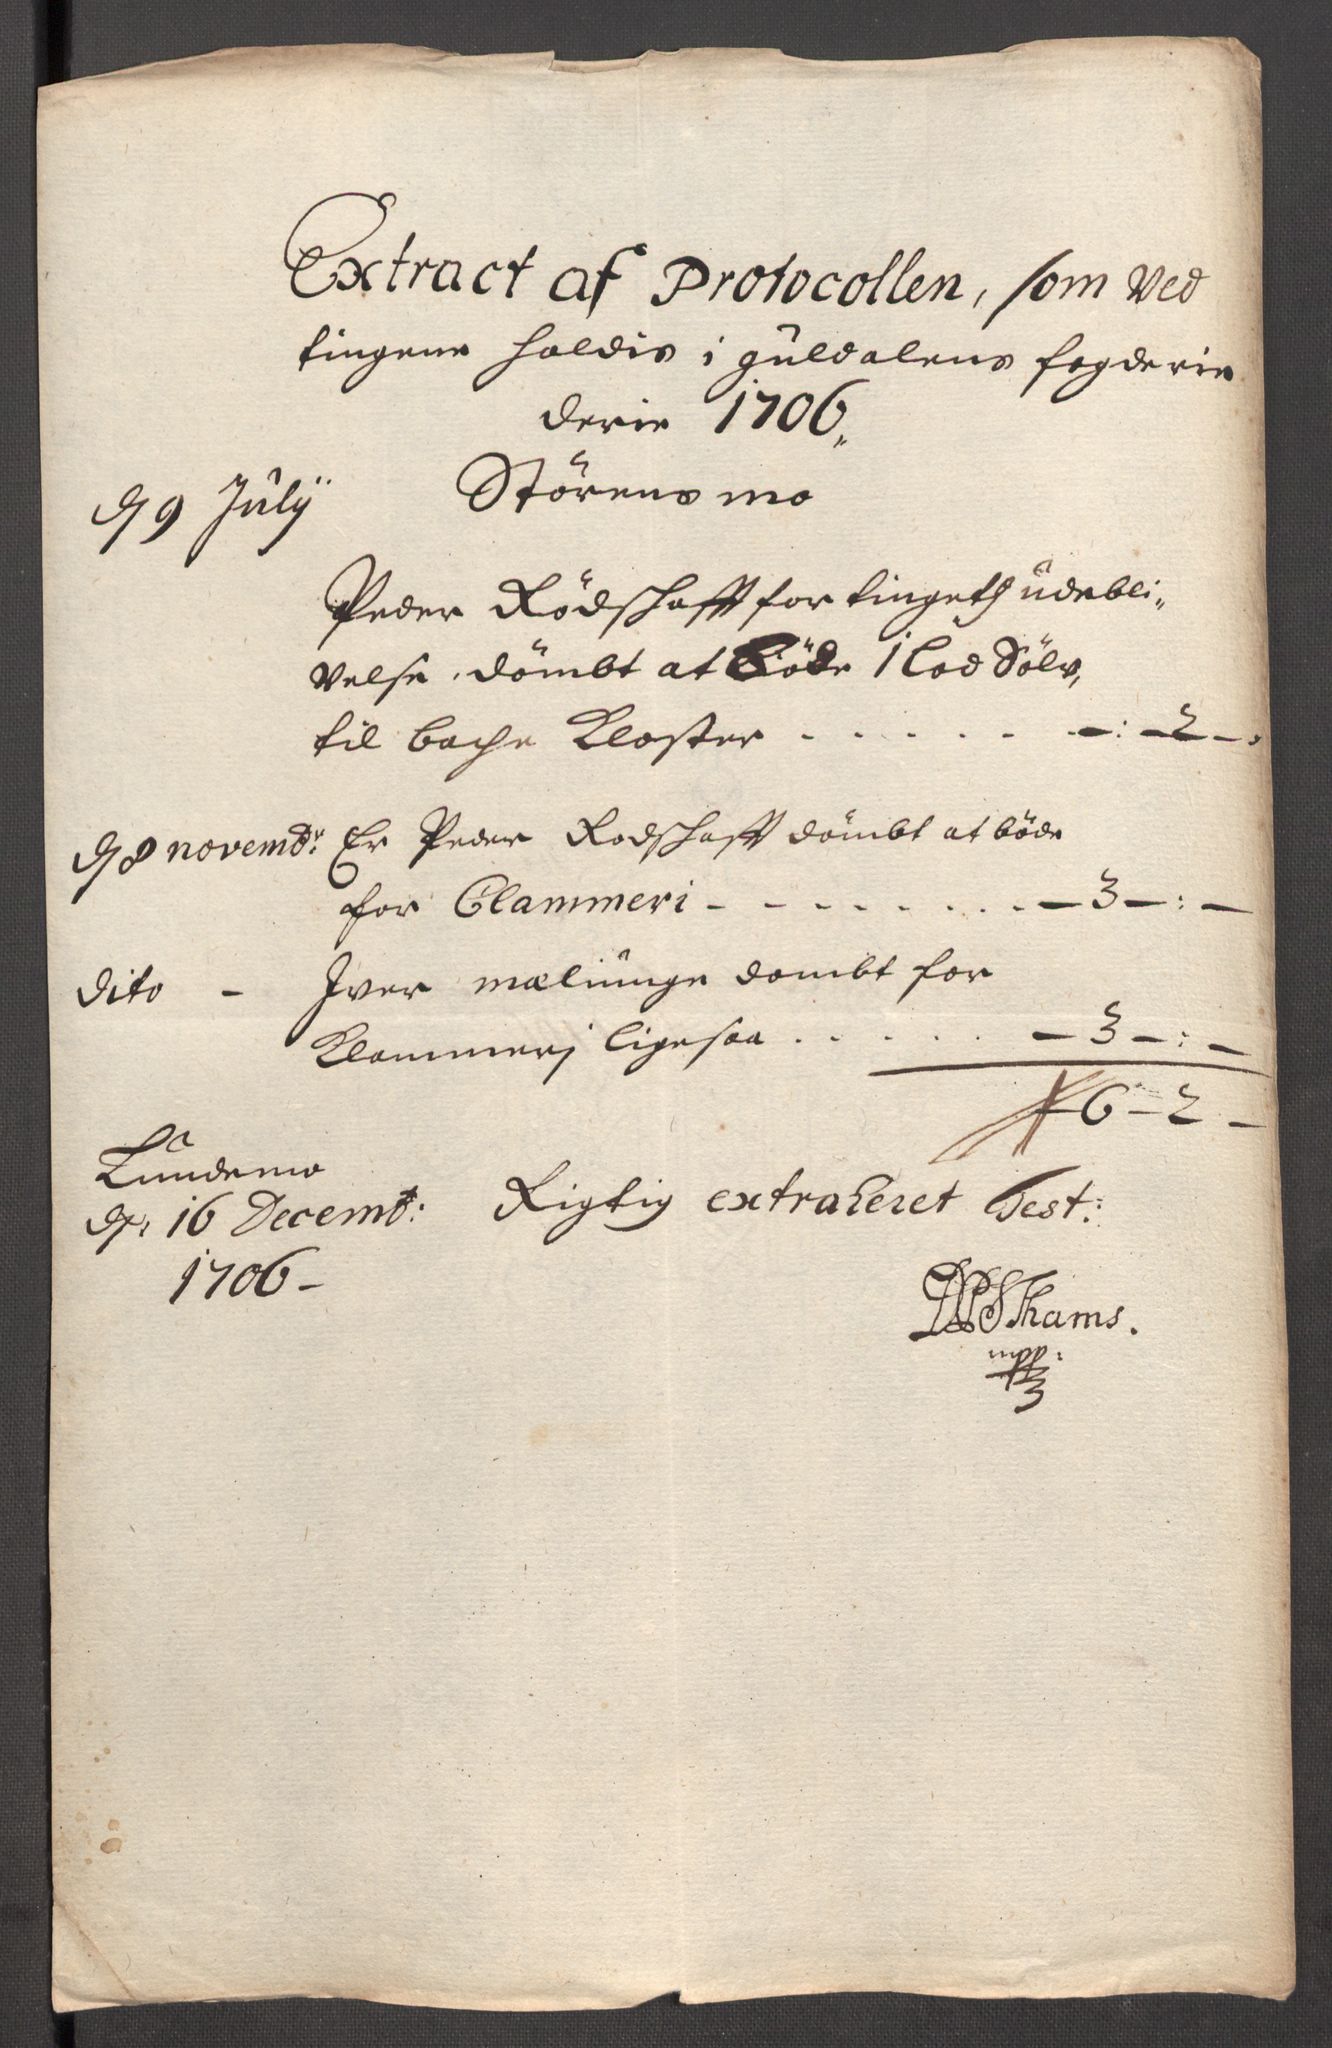 Extract af Protocollen, som Ved
tingene holdis i Guldalens fogderie
derie 1706„
d 9 Julÿ Störens mo
Peder Rödschafft for tingets üdebli„
velse, dömbt at böde 1 lod Sölv,
til bache Kloster . . . . . . -: 2 -.
d 8 novembr: Er Peder Rodschafft dömbt at böde
for Clammeri - - - - . . . . . - 3 - : -
dito - Iver mæliünge dombt for
Klammerj ligesaa . . . . . . - 3 - : -
6 - 2 -
Lundemo
d: 16 Decemb: Rigtig extraheret Test:
1706 -
Thams.
mpp: